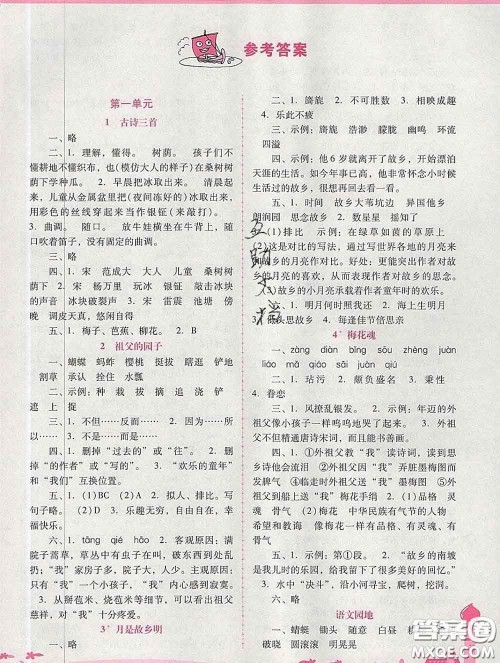 参考答案
第一单元
1 古诗三首
一、略
二、1. 理解，懂得。 树荫。 孩子们不
懂耕地不懂织布，也（模仿大人的样子）在桑树树
荫下学种瓜。 2. 早晨把冰取出来。 清晨起
来，儿童从金属盆里把（夜间冻好的）冰取出来，
用彩色的丝线穿起来当作银钲（来敲打）。
3. 曲调。 随口。 放牛娃横坐在牛背上，随
口吹着笛子，没有固定的曲调。
三、略
四、1. 宋 范成大 大人 儿童 桑树树荫
2. 宋 杨万里 玩冰 银钲 敲击冰块的
声音 冰块破裂声 3. 宋 雷震 池塘 傍
晚 调皮天真，悠闲自得
五、1. 梅子、芭蕉、柳花。 2. 略
2 祖父的园子
一、蝴蝶 蚂蚱 樱桃 挺拔 瞎逛 铲地
割草 承认 拴住 水瓢
二、示例：种 栽 拔 摘 追 浇 铲
逮 上 捉
三、1. 不但……反而…… 2. 因为……所
以…… 3. 不是……而是……
四、1. 删掉“过去的”或“往”。 2. 删
掉“的著作”或“写的”。 3. “欢乐的童年”
和“我们”互换位置。
五、1. (1)BC (2)AD 2. 拟人、排比。写
出了……
3. (1)B (2)C 4. 乐趣无穷，自由自在，
幸福快乐。
六、1. tāng qié hāo 2. 客观原因：满
院子蒿草，草丛中有虫也有蚂蚱，再到处乱闹；
“我”家房子多，院子大，人少。主观原因：
“我”是一个小孩子，“我”内心感到寂寞。
3. 从掰苞米、烧苞米等细节，看出祖父很
慈祥，对“我”十分疼爱。
3* 月是故乡明
一、略
二、1. 旖旎 2. 不可胜数 3. 相映成趣
4. 乐此不疲
三、示例：旖旎 浩渺 朦胧 幽鸣 环流
四溢
四、1. 示例：他6岁就离开了故乡，开始漂泊
天涯的生活。如今年事已高，他非常怀念小时候
在故乡的日子，常常回忆过去的点点滴滴。
五、1. 时间 故乡大苇坑边 异国他乡
朗润园 思念故乡 2. 数星星 摇知了
3. (1)排比 示例：在绿草如茵的草原上
(2)这是对比的写法，通过写世界各地的月亮来
衬托故乡的小月亮。好处：更能突出作者对故乡
的月亮的喜欢，从而表达作者对故乡的思念。
(3)故乡的小月亮承载着作者童年时的欢乐。
六、1. 明月何时照我还 2. 海上生明月
3. 低头思故乡 4. 每逢佳节倍思亲
4* 梅花魂
一、zàng diàn bīng sōu zhèng juàn
liáo qiú háo mò qì kōng
二、1. 玷污 2. 颇负盛名 3. 秉性
4. 眷恋
三、1. 风撩乱银发。 2. 示例：年迈的外
祖父像个小孩子一样呜呜呜地哭了起来。 3.
外祖父不但精通唐诗宋词，而且酷爱书画。
四、1. ①外祖父教“我”读诗词，读到思
乡诗他会流泪 ②外祖父因“我”弄脏墨梅图而
发脾气 ④临走时送墨梅图 ⑤送绣着血梅的手
绢 墨梅图 “我” 梅花手绢 2. (1)品格 灵
魂 骨气 梅花 中华民族有气节的人物
希望和教诲 像梅花一样有品格、有灵魂、有
骨气
五、1. 示例：第①段。 2. “故乡的南坡
是我们儿时的乐园”。 示例：第③段。
3. 水中“决斗”，沿小河寻宝，爬树，挖洞。
六、略
语文园地
一、蜻蜓 锄头 随意 白昼 模仿
瞎闹 圆滚滚 明晃晃
互助文档
答案圈
MXQE.COM